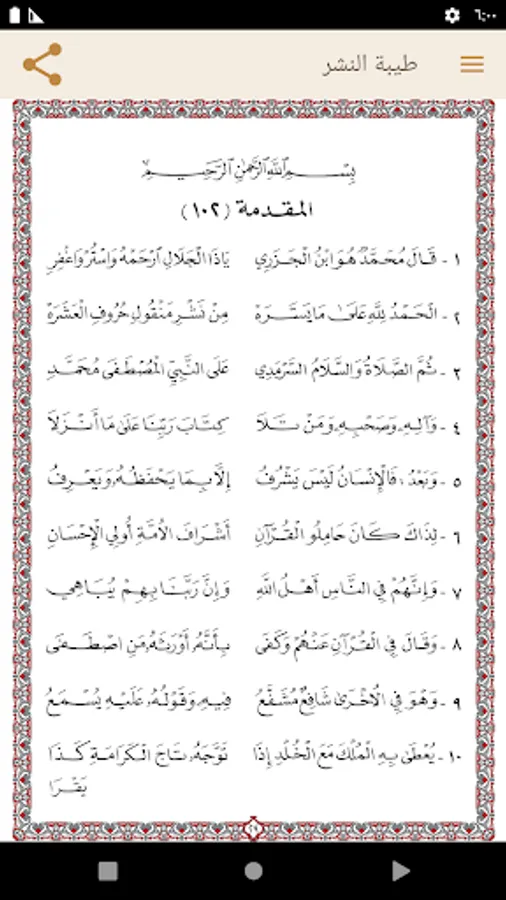 ٦:٠٠
طيبة النشر
بِسْمِ اللَّهِ الرَّحْمَٰنِ الرَّحِيمِ
المقدمة (١٠٢)
١ - قَالَ مُحَمَّدٌ هُوَ ابْنُ الْجَزَرِي يَاذَا الْجَلَالِ ارْحَمْهُ وَاسْتُرْ وَاغْفِرِ
٢ - الْحَمْدُ لِلَّهِ عَلَىٰ مَا يَسَّرَهْ مِنْ نَشْرِ مَنْقُولِ حُرُوفِ الْعَشَرَهْ
٢ - ثُمَّ الصَّلَاةُ وَالسَّلَامُ السَّرْمَدِي عَلَى النَّبِيِّ الْمُصْطَفَى مُحَمَّدِ
٤ - وَآلِهِ وَصَحْبِهِ وَمَنْ تَلَا كِتَابَ رَبِّنَا عَلَىٰ مَا أَنْزَلَا
٥ - وَبَعْدُ : فَالْإِنْسَانُ لَيْسَ يَشْرُفُ إِلَّا بِمَا يَحْفَظُهُ وَيَعْرِفُ
٦ - لِذَاكَ كَانَ حَامِلُو الْقُرْآنِ أَشْرَافَ الْأُمَّةِ أُولِي الْإِحْسَانِ
٧ - وَإِنَّهُمْ فِي النَّاسِ أَهْلُ اللَّهِ وَإِنَّ رَبَّنَا بِهِمْ يُبَاهِي
٨ - وَقَالَ فِي الْقُرْآنِ عَنْهُمْ وَكَفَى بِأَنَّهُ أَوْرَثَهُ مَنِ اصْطَفَى
٩ - وَهْوَ فِي الْأُخْرَىٰ شَافِعٌ مُشَفَّعُ فِيهِ وَقَوْلُهُ عَلَيْهِ يُسْمَعُ
١٠ - يُعْطَىٰ بِهِ الْمُلْكَ مَعَ الْخُلْدِ إِذَا تَوَّجَهُ تَاجَ الْكَرَامَةِ كَذَا
يَقْرَا